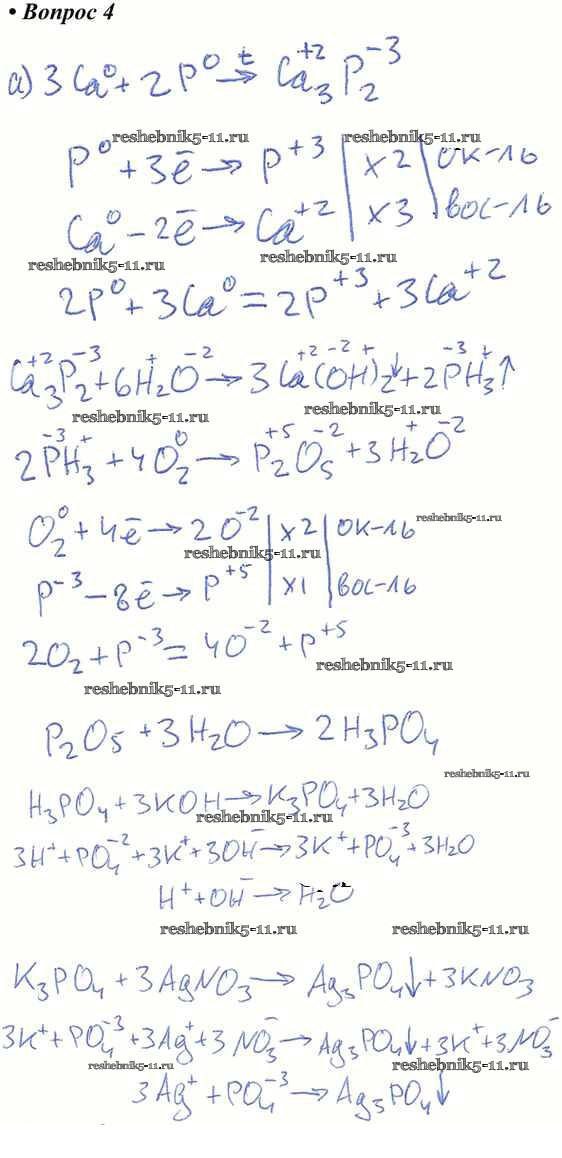 • Вопрос 4
а) 3Ca⁰ + 2P⁰ →ᵗ Ca₃⁺²P₂⁻³
reshebnik5-11.ru reshebnik5-11.ru
P⁰ + 3ē → P⁺³ | x2 | ок-ль
Ca⁰ - 2ē → Ca⁺² | x3 | вос-ль
reshebnik5-11.ru reshebnik5-11.ru
2P⁰ + 3Ca⁰ = 2P⁺³ + 3Ca⁺²
Ca₃⁺²P₂⁻³ + 6H₂⁺O⁻² → 3Ca⁺²(O⁻²H⁺)₂↓ + 2P⁻³H₃⁺↑
reshebnik5-11.ru reshebnik5-11.ru
2P⁻³H₃⁺ + 4O₂⁰ → P₂⁺⁵O₅⁻² + 3H₂⁺O⁻²
O₂⁰ + 4ē → 2O⁻² | x2 | ок-ль reshebnik5-11.ru
reshebnik5-11.ru
P⁻³ - 8ē → P⁺⁵ | x1 | вос-ль
2O₂ + P⁻³ = 4O⁻² + P⁺⁵
reshebnik5-11.ru
reshebnik5-11.ru
P₂O₅ + 3H₂O → 2H₃PO₄
reshebnik5-11.ru
H₃PO₄ + 3KOH → K₃PO₄ + 3H₂O
reshebnik5-11.ru
3H⁺ + PO₄⁻² + 3K⁺ + 3OH⁻ → 3K⁺ + PO₄⁻³ + 3H₂O
H⁺ + OH⁻ → H₂O
reshebnik5-11.ru reshebnik5-11.ru
K₃PO₄ + 3AgNO₃ → Ag₃PO₄↓ + 3KNO₃
3K⁺ + PO₄⁻³ + 3Ag⁺ + 3NO₃⁻ → Ag₃PO₄↓ + 3K⁺ + 3NO₃⁻
reshebnik5-11.ru reshebnik5-11.ru
3Ag⁺ + PO₄⁻³ → Ag₃PO₄↓